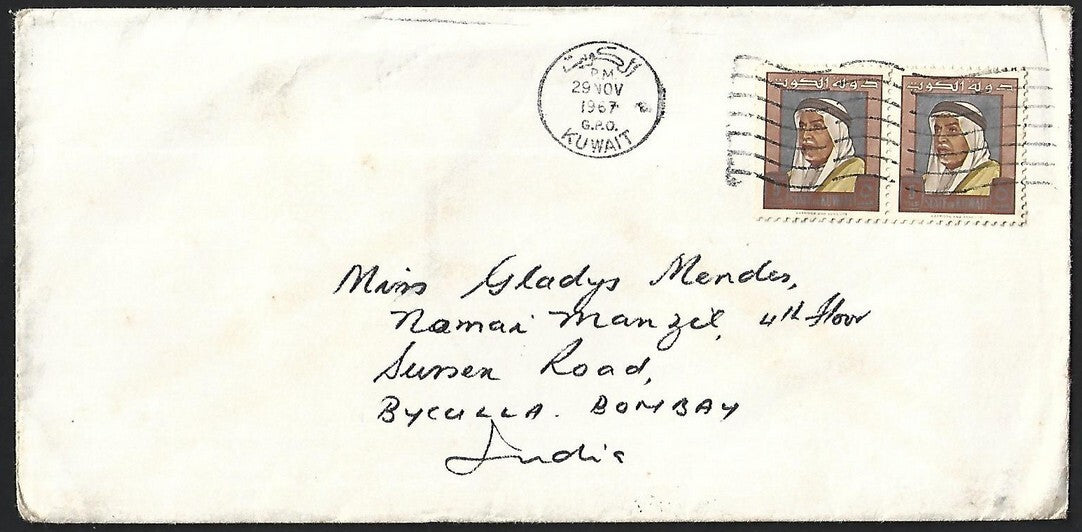 الكويت
PM
29 NOV
1967
G.P.O.
KUWAIT
دولة الكويت
دولة الكويت
STATE OF KUWAIT
Miss Gladys Mendes,
Namazi Manzil, 4th Floor
Sussex Road,
BYCULLA. BOMBAY
India